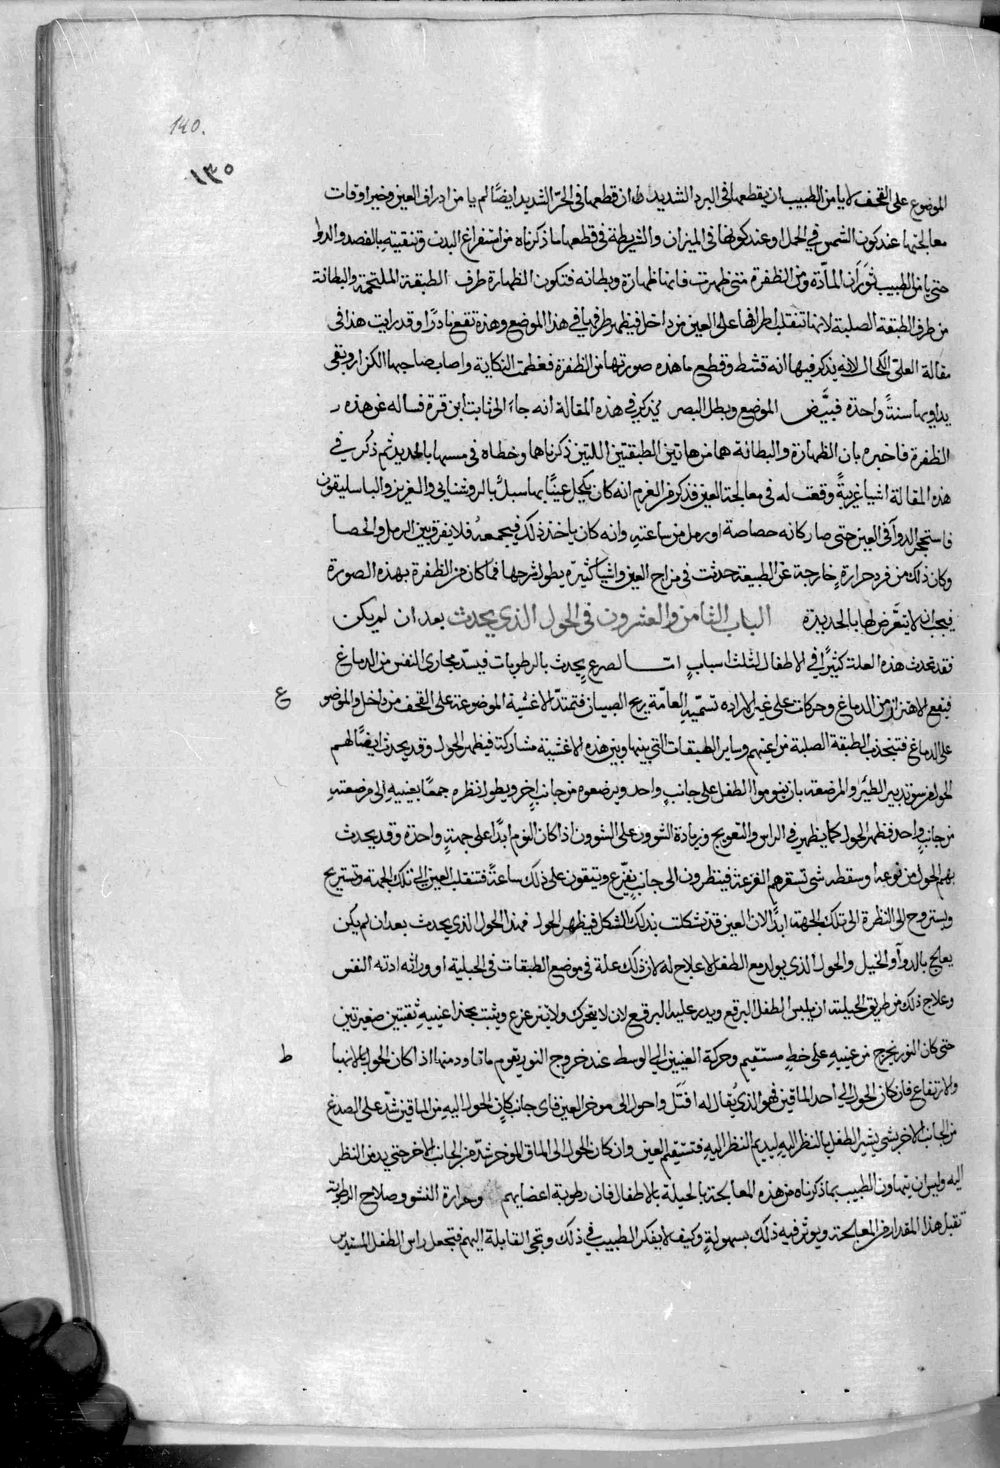 140.
١٣٥
الموضوع على القحف لا يامن الطبيب ان يقطعها في البرد الشديد لان قطعها في الحرّ الشديد ايضًا لم يامن ادراف العين وخير اوقات
معالجتها عند كون الشمس في الحمل او عند كونها في الميزان والشريطة في قطعها ما ذكرناه من استفراغ البدن وتنقيته بالفصد والدوا
حتى يامن الطبيب ثوران المادّة ومن الظفرة متى ظهرت فانها ظهارة وبطانه فتكون الظهارة طرف الطبقة الملتحمة والبطانة
من طرف الطبقة الصلبة لانها تنقلب اطرافها على العين من داخل فيظهر طرفها في هذا الموضع وهذه تقع نادرًا وقد رايت هذا في
مقالة العلى الكحال لانه يذكر فيها انه قشط وقطع ما هذه صورتها من الظفرة فعظمت النكاية واصاب صاحبها الكزاز وبقي
يداويها سنةً واحدة فبيَّض الموضع وبطل البصر يذكر في هذه المقالة انه جاء الى ثابت ابن قرة فساله عن هذه
الظفرة فاخبره بان الظهارة والبطانة هما من هاتين الطبقتين اللتين ذكرناهما وخطاه في مسها بالحديد ثم ذكر في
هذه المقالة اشيا غريبةً وقعت له في معالجة العين فذكر من الغرم انه كان يكحل عينًا بها سبلٌ بالروشنايي والغريز والباسليقون
فاستحجر الدوآ في العين حتى صار كانه حصاصة او رمل من ساعته وانه كان ياخذ ذلك فيجمعهُ فلا يفرق بين الرمل والحصا
وكان ذلك من فرد حرارةٍ خارجة عن الطبيعة حدثت في مزاج العين واشيآ كثيرة يطول شرحها فما كان من الظفرة بهذه الصورة
فيجب ان لا يتعَّرض لها بالحديدة الباب الثامن والعشرون في الحول الذي يحدث بعد ان لم يكن
فقد تحدث هذه العلة كثيرًا في الاطفال لثلث اسبابٍ امّا لصرعٍ يحدث بالرطوبات فيسدّ مجاري النفس من الدماغ
فيقع الاهتزاز من الدماغ وحركات على غير الاراده تسمّيه العامّة بريح الصبيان فتمتدّ الاغشية الموضوعة على القحف من داخل والموضو
ع
على الدماغ فتنجذب الطبقة الصلبة من اعينهم وساير الطبقات التي بينها وبين هذه الاغشية مشاركة فيظهر الحول وقد يحدث ايضًا لهم
الحول من سوتدبير الظئر والمرضعة بان ينوموا الطفل على جانبٍ واحد ويرضعوه من جانب اخر ويطول نظره جمعًا بعينيه الى مرضعته
من جانبٍ واحد فظهر الحول كما يظهر في الراس والتعويج وزيادة الشوون على الشوون اذا كان النوم ابدًا على جهتهٍ واحدة وقد يحدث
بهم الحول من نوعه او سقطه شى تسقرهم الفزعة فينظرون الى جانب يفزّع ويبقون على ذلك ساعةً فتنقلب العين الى تلك الجهة وتستريح
ويستروح الى النظرة الى تلك الجهة ابدًا لان العين قد تشكلت بذلك الشكل فيظهر الحول فهذا الحول الذي يحدث بعد ان لم يكن
يعالج بالدوآ والخيل والحول الذي يولد مع الطفل لا علاج له لان ذلك علة في موضع الطبقات في الجبلية او وراثه ادته النفس
وعلاج ذلك من طريق الحيلة ان يلبس الطفل البرقع ويدر عليه البرقع لان لا يتحرك ولا يتزعزع ويثبت بحذا عينيه ثقبتين صغيرتين
حتى كان النور يخرج من عينيه على خطٍ مستقيم وحركة العينين الى الوسط عند خروج النور يقوم ماتاود منها اذا كان الحول بالانهبا
ط
والارتفاع فان كان الحول الى احد الماقين فهو الذي يُقال له اقتَل واحول الى موخر العين فاى جانب كان الحول اليه من الماقين شدّ على الصدغ
من الجانب الاخر بشى يشير الطفل بالنظر اليه ليديم النظر اليهِ فتستقيم العين وان كان الحول الى الماق الموخر شدّ من الجانب الاخر حتى يدمن النظر
اليه وليس ان يتهاون الطبيب بما ذكرناه من هذه المعالجة بالحيلة بالاطفال فان رطوبة اعضايهم وحرارة النشو وصلاح الرطوبة
تقبل هذا المقدار من المعالجة ويوثر فيه ذلك بسهولةٍ وكيف لا يفكر الطبيب في ذلك وتجى القابلة اليهم فتجعل راس الطفل المستدير